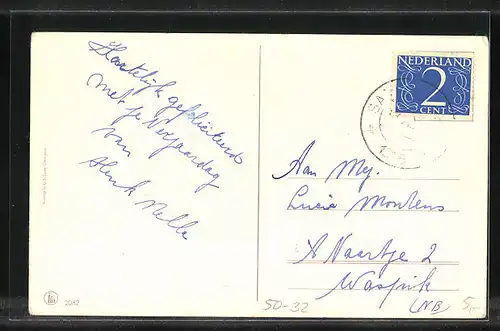 Hartelijk gefeliciteerd
met je Verjaardag
van
Henk Nella
NEDERLAND
2
CENT
SA
Aan Mej.
Lucia Montens
't Vaartje 2
Waspik
(NB)
2082
50-32
5,-